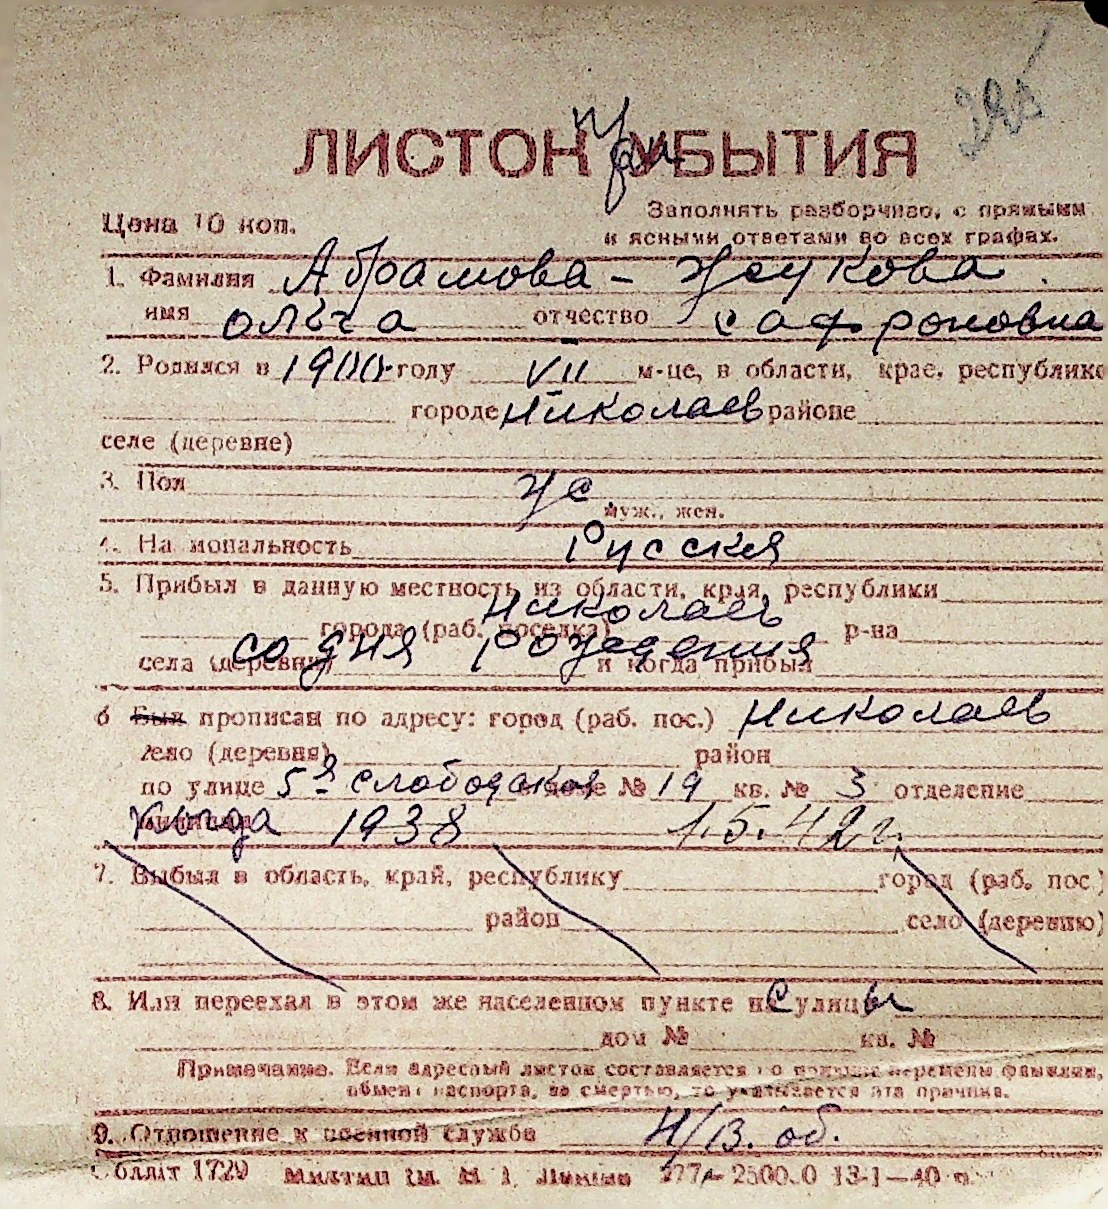 ЛИСТОК УБЫТИЯ
при
Цена 10 коп.
Заполнять разборчиво, с прямыми
и ясными ответами во всех графах.
1. Фамилия Абрамова - Жукова
имя Ольга отчество Сафроновна
2. Родился в 1900 году VII м-це, в области, крае, республике
городе Николаев районе
селе (деревне)
3. Пол ж
муж., жен.
4. Национальность Русская
5. Прибыл в данную местность из области, края, республики
Николаев
города (раб. поселка) р-на
со дня рождения
села (деревни) и когда прибыл
6 Был прописан по адресу: город (раб. пос.) Николаев
село (деревня) район
по улице 5я Слободская доме № 19 кв. № 3 отделение
Когда 1938 1.5.42 г.
7. Выбыл в область, край, республику город (раб. пос.)
район село (деревню)
8. Или переехал в этом же населенном пункте с улицы
дом № кв. №
Примечание. Если адресный листок составляется по причине перемены фамилии,
обмена паспорта, за смертью, то указывается эта причина.
9. Отношение к военной службе Н/В. об.
Обллит 1729 им. 13-1—40 г.